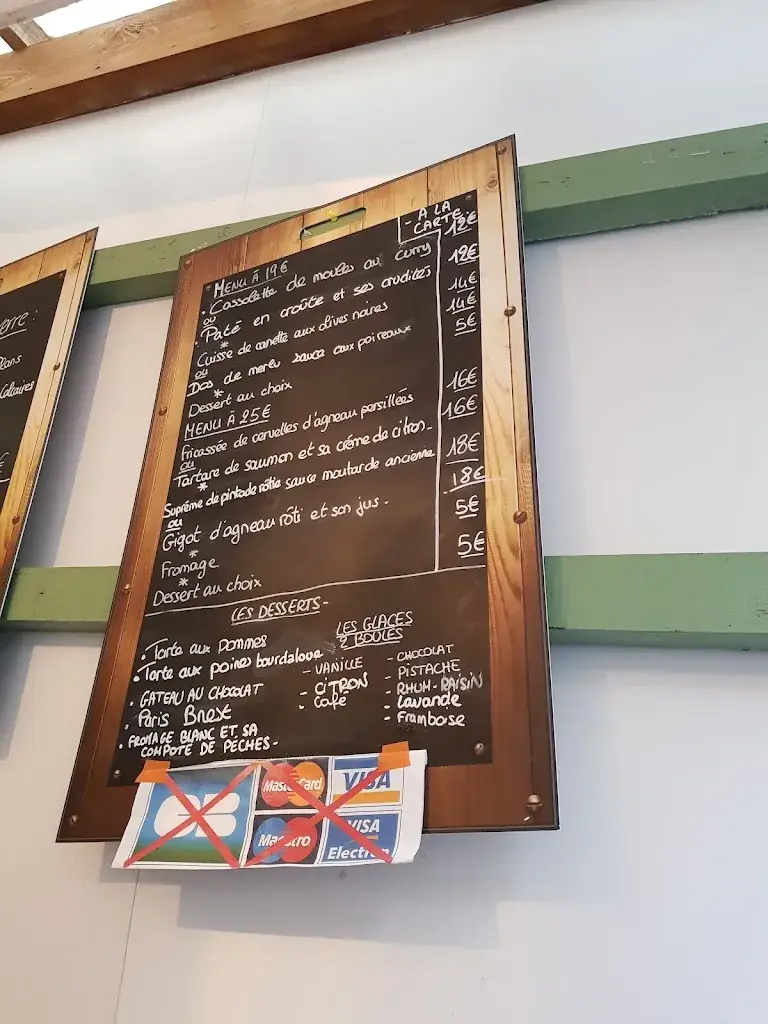 erre:
lans
Coltaires
€
- A LA
CARTE
MENU À 19€
• Cassolette de moules au curry 12€
ou
• Pâté en croûte et ses crudités 12€
*
Cuisse de canette aux olives noires 14€
ou
Dos de merlu sauce aux poireaux 14€
*
Dessert au choix 5€
MENU À 25€
Fricassée de cervelles d'agneau persillées 16€
ou
Tartare de saumon et sa crème de citron- 16€
*
Suprême de pintade rôtie sauce moutarde ancienne 18€
ou
Gigot d'agneau rôti et son jus. 18€
*
Fromage 5€
*
Dessert au choix 5€
LES DESSERTS-
• Tarte aux Pommes
• Tarte aux poires bourdaloue
• GATEAU AU CHOCOLAT
• Paris Brest
• FROMAGE BLANC ET SA
COMPOTE DE PÈCHES-
LES GLACES
2 BOULES
- VANILLE
- CITRON
- Café
- CHOCOLAT
- PISTACHE
- RHUM-RAISIN
- Lavande
- Framboise
CB
MasterCard
VISA
Maestro
VISA
Electron